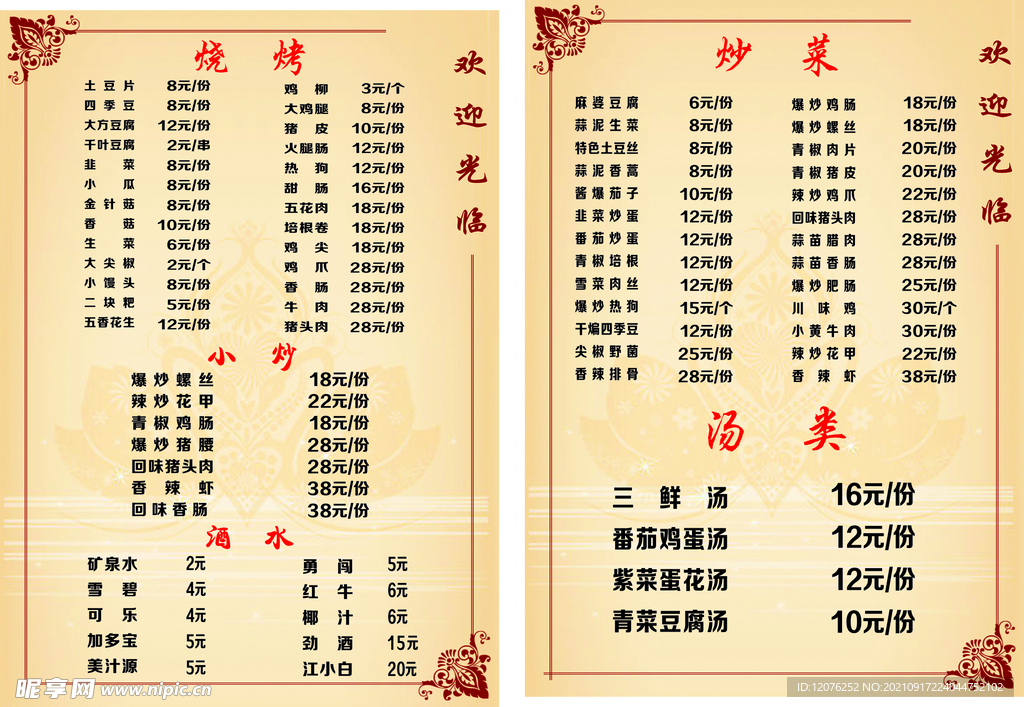 欢迎光临
烧 烤
土豆片 8元/份
四季豆 8元/份
大方豆腐 12元/份
千叶豆腐 2元/串
韭菜 8元/份
小瓜 8元/份
金针菇 8元/份
香菇 10元/份
生菜 6元/份
大尖椒 2元/个
小馒头 8元/份
二块粑 5元/份
五香花生 12元/份
鸡柳 3元/个
大鸡腿 8元/份
猪皮 10元/份
火腿肠 12元/份
热狗 12元/份
甜肠 16元/份
五花肉 18元/份
培根卷 18元/份
鸡尖 18元/份
鸡爪 28元/份
香肠 28元/份
牛肉 28元/份
猪头肉 28元/份
小 炒
爆炒螺丝 18元/份
辣炒花甲 22元/份
青椒鸡肠 18元/份
爆炒猪腰 28元/份
回味猪头肉 28元/份
香辣虾 38元/份
回味香肠 38元/份
酒 水
矿泉水 2元
雪碧 4元
可乐 4元
加多宝 5元
美汁源 5元
勇闯 5元
红牛 6元
椰汁 6元
劲酒 15元
江小白 20元
昵享网 www.nipic.cn
欢迎光临
炒 菜
麻婆豆腐 6元/份
蒜泥生菜 8元/份
特色土豆丝 8元/份
蒜泥香蒿 8元/份
酱爆茄子 10元/份
韭菜炒蛋 12元/份
番茄炒蛋 12元/份
青椒培根 12元/份
雪菜肉丝 12元/份
爆炒热狗 15元/个
干煸四季豆 12元/份
尖椒野菌 25元/份
香辣排骨 28元/份
爆炒鸡肠 18元/份
爆炒螺丝 18元/份
青椒肉片 20元/份
青椒猪皮 20元/份
辣炒鸡爪 22元/份
回味猪头肉 28元/份
蒜苗腊肉 28元/份
蒜苗香肠 28元/份
爆炒肥肠 25元/份
川味鸡 30元/个
小黄牛肉 30元/份
辣炒花甲 22元/份
香辣虾 38元/份
汤 类
三鲜汤 16元/份
番茄鸡蛋汤 12元/份
紫菜蛋花汤 12元/份
青菜豆腐汤 10元/份